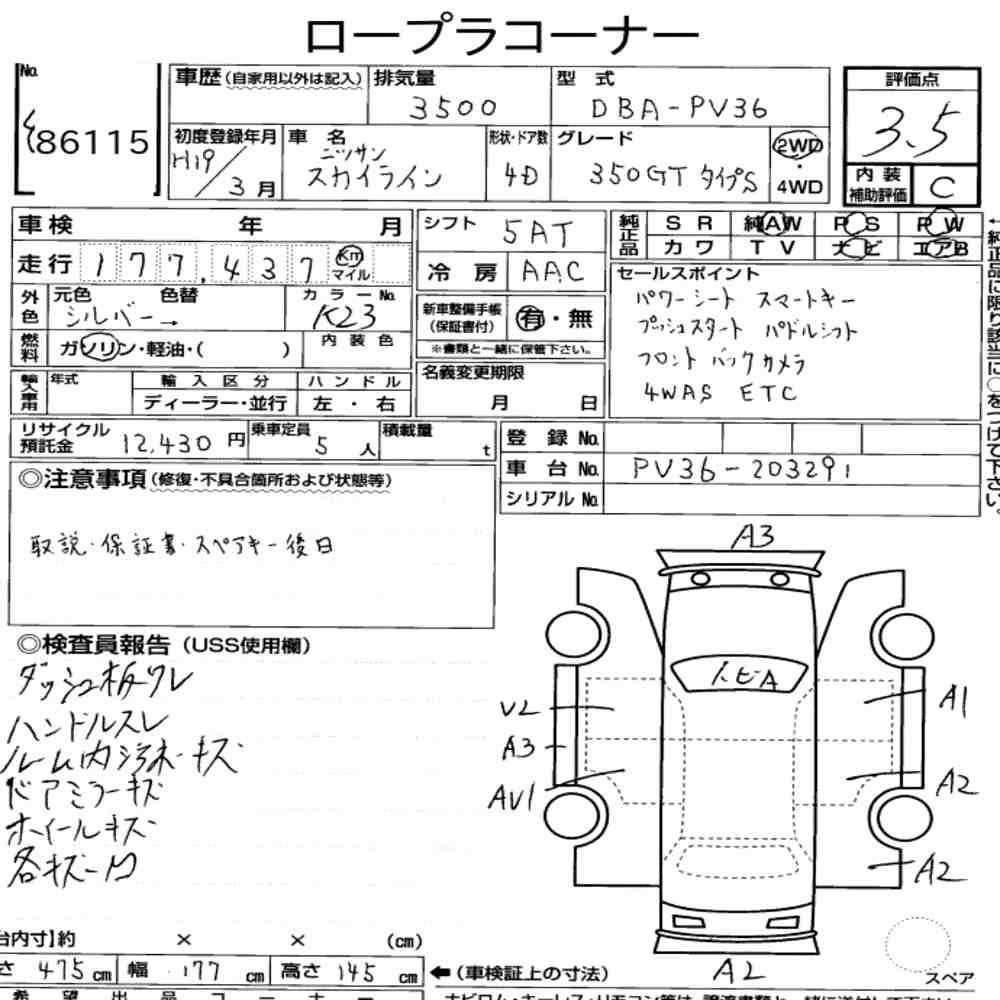 ロープラコーナー
No.
86115
車歴 (自家用以外は記入)
排気量
3500
型 式
DBA-PV36
評価点
3.5
初度登録年月
H19/3月
車 名
ニッサン
スカイライン
形状・ドア数
4D
グレード
350GT タイプS
2WD
・
4WD
内 装
補助評価
C
車検 年 月
シフト
5AT
純正品
S R 純AW P S P W
カ ワ T V ナビ エアB
走行 177,437 Km マイル
冷 房 AAC
セールスポイント
パワーシート スマートキー
プッシュスタート パドルシフト
フロント バックカメラ
4WAS ETC
外色
元色 色替
シルバー→
カラーNo.
K23
新車整備手帳
(保証書付)
有・無
※書類と一緒に保管下さい。
燃料
ガソリン・軽油・( )
内装色
輸入車用
年式
輸入区分
ハンドル
ディーラー・並行
左・右
名義変更期限
月 日
←純正品に限り該当に○をつけて下さい。
リサイクル
預託金
12,430円
乗車定員
5人
積載量
t
登 録 No.
車 台 No. PV36-203291
シリアル No.
◎注意事項(修復・不具合箇所および状態等)
取説・保証書・スペアキー後日
◎検査員報告(USS使用欄)
ダッシュ板ワレ
ハンドルスレ
ルーム内汚れ・キズ
ドアミラーキズ
ホイールキズ
各キズ・凹
A3
トビA
V2
A3
AV1
A1
A2
A2
A2
スペア
台内寸】約 × × (cm)
さ 475cm 幅 177cm 高さ 145cm
←(車検証上の寸法)
希望出品コーナー